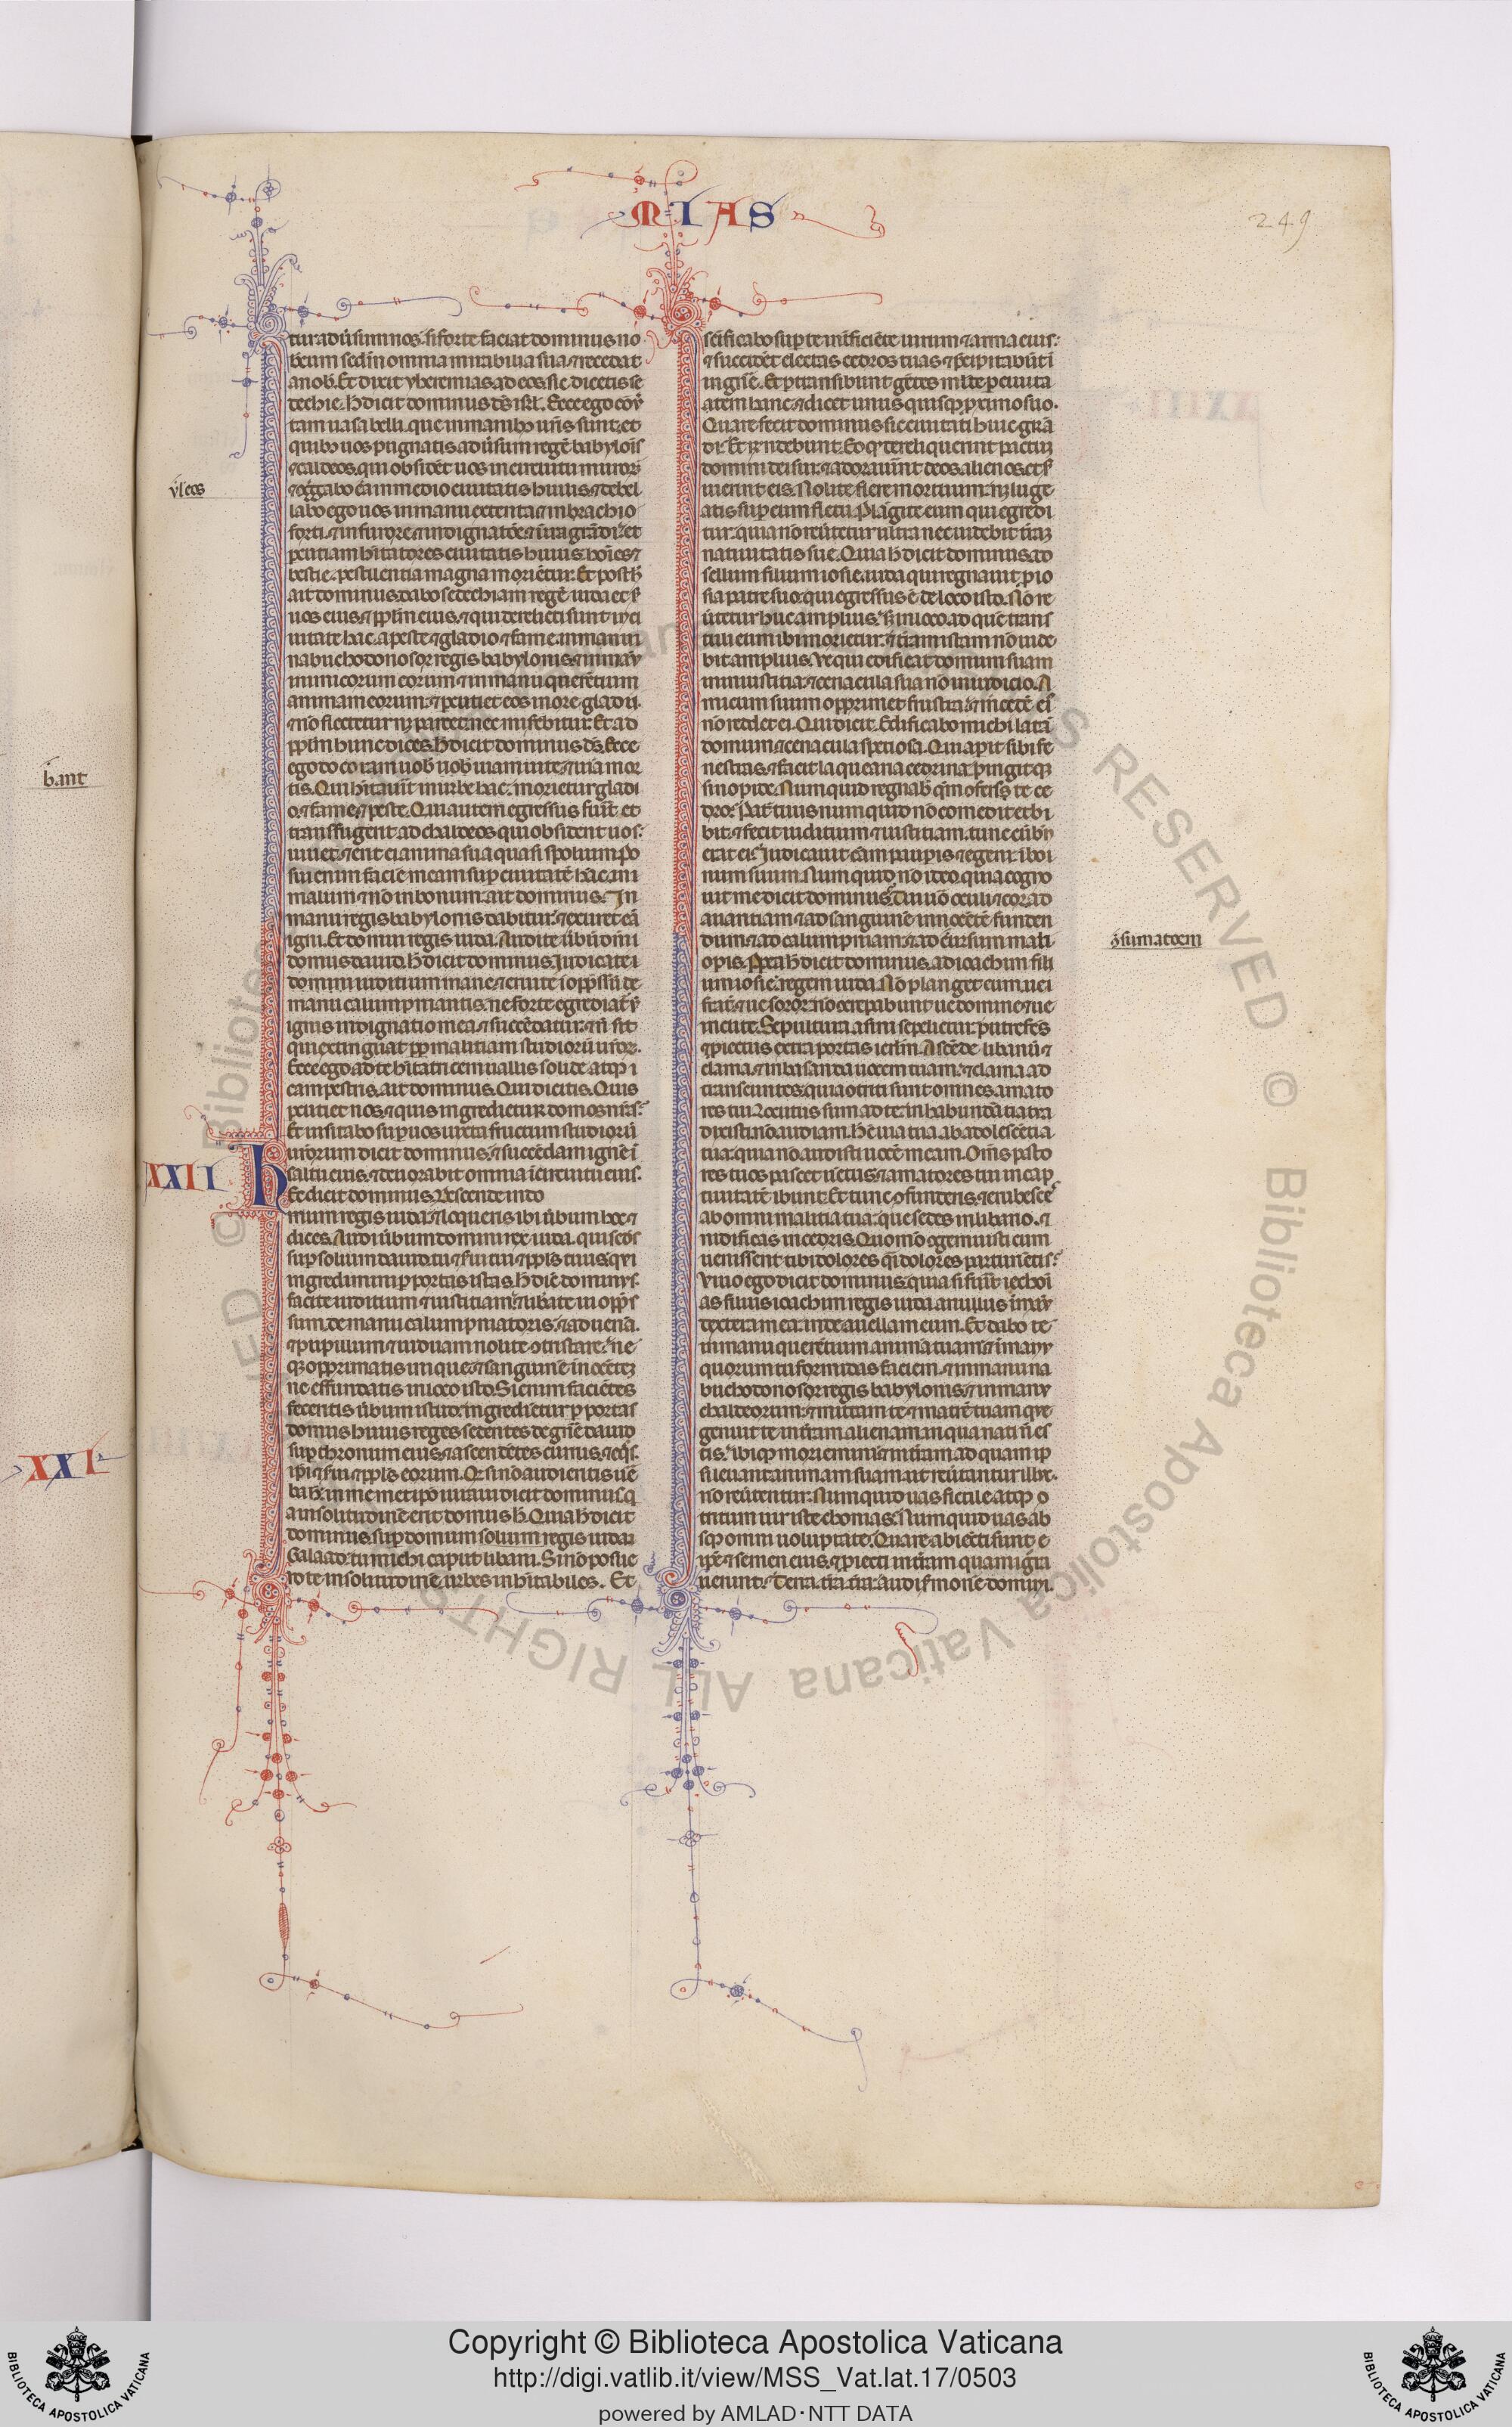 MIAS
249
tur adũsum nos. si forte faciat dominus no
bcum scdm omnia mirabilia sua. ⁊ recedat
a nob. Et dixit yheremias ad eos. sic dicetis se
dechie. H̄ dicit dominus ds isrl. Ecce ego cõu̾
tam uasa belli. que in manibꝰ ur̃is sunt. et
quibꝰ uos pugnatis adũsum regẽ babylois
⁊ caldeos. qui obsidẽt uos in circuitu muroꝝ
⁊ ꝯg̃gabo ea in medio ciuitatis huius. ⁊ debel
labo ego uos in manu extenta. ⁊ in brachio
forti. ⁊ in furore. ⁊ indignatõe. ⁊ in ira grãdi. et
ꝑcutiam hitatores ciuitatis huius. hoĩes ⁊
bestie. pestilentia magna moriẽtur. Et post h̄
ait dominus. dabo sedechiam regẽ iuda. et s̾
uos eius. ⁊ pplm eius. ⁊ qui derelicti sunt in ci
uitate hac. a peste ⁊ gladio ⁊ fame. in manu
nabuchodonosor regis babylonis. ⁊ in manu
inimicorum eorum. ⁊ in manu querẽtium
animam eorum. ⁊ ꝑcutiet eos in ore gladii.
⁊ nõ flectetur nꝫ parcet. nec mis̾ebitur. Et ad
pplm hunc dices. H̄ dicit dominus ds. Ecce
ego do coram uob̃ uiam uite. ⁊ uiã mor
tis. Qui hitauit in urbe hac. morietur gladi
o. ⁊ fame. ⁊ peste. Qui autem egressus fuit et
transfugerit ad chaldeos qui obsident uos.
uiuet. ⁊ erit ei anima sua quasi spolium. Po
sui enim faciẽ meam sup̱ ciuitatẽ hãc in
malum ⁊ nõ in bonum. ait dominus. In
manu regis babylonis dabitur. ⁊ exuret eã
igni. Et domui regis iuda. Audite ũbũ dñi
domus dauid. H̄ dicit dominus. Iudicate i
domini iuditium mane. ⁊ eruite ui opp̃ssũ de
manu calumpniantis. ne forte egrediat̃ ut
ignis indignatio mea. ⁊ succẽdatur. ⁊ nõ sit
qui extinguat. ꝓp malitiam studiorũ ur̃oꝝ.
Ecce ego ad te hitatricem uallis solide atqꝫ
campestris. ait dominus. Qui dicitis. Quis
ꝑcutiet nos. ⁊ quis ingredietur domos nr̃as.
Et uisitabo sup̱ uos iuxta fructum studiorũ
ur̃orum dicit dominus. ⁊ succẽdam ignẽ i
saltu eius. ⁊ deuorabit omnia ĩ circuitu eius.
XXII
Hec dicit dominus. Descende in do
mum regis iuda. ⁊ loqueris ibi ũbum hoc. ⁊
dices. Audi ũbum domini rex iuda. qui sedes
sup̱ solium dauid. tu ⁊ s̾ui tui ⁊ ppls tuus. qui
ingredimini ꝑ portas istas. H̄ dic̃ dominus.
facite iuditium ⁊ iustitiam. ⁊ libate ui opp̃s
sum. de manu calumpniatoris. ⁊ aduenã.
⁊ pupillum ⁊ uiduam nolite ꝯtristare. ne
qꝫ opprimatis inique. ⁊ sanguinẽ inocẽtẽ
ne effundatis in loco isto. Si enim faciẽtes
feceritis ũbum istud. ingredietur ꝑ portas
domus huius reges. sedentes de gñe dauid
sup̱ thronum eius. ⁊ ascendẽtes currus. ⁊ eqͦs.
ip̃i ⁊ s̾ui ⁊ ppls eorum. Qͦ si nõ audieritis uẽ
ba h̄. in memetip̃o iuraui dicit dominus. q
a in solitudinẽ erit domus h̄. Quia h̄ dicit
dominus. sup̱ domum solium regis iuda.
Galaad. tu michi caput libani. Si nõ posue
ro te in solitudinẽ. urbes inhitabiles. Et
ul̃ eos
scificabo sup̱ te int̾ficiẽte uirum ⁊ arma eius.
⁊ succidẽt electas cedros tuas ⁊ p̃cipitabũt ĩ
in ignẽ. Et ꝑtransibunt gẽtes mlte ꝑ ciuita
atem hanc. ⁊ dicet unus quisqꝫ ꝓximo suo.
Quare fecit dominus sic ciuitati huic grã
di. Et rñdebunt. Eo qͩ dereliquerint pactum
domini dei sui. ⁊ adorauerũt deos alienos. et s̾
uierint eis. Nolite flere mortuum. nꝫ luge
atis sup̱ eum fletu. Plãgite eum qui egredi
tur. quia nõ reũtetur ultra. nec uidebit t̃rã
natiuitatis sue. Quia h̄ dicit dominus. ad
sellum filium iosie. iuda qui regnauit ꝓ io
sia patre suo. qui egressus ẽ de loco isto. Nõ re
ũtetur huc amplius. sꝫ in loco. ad quẽ trans
tuli eum ibi morietur. ⁊ t̃ram istam nõ uide
bit amplius. Ve qui edificat domum suam
in iniustitia. ⁊ cenacula sua nõ in iudicio. A
micum suum opprimet frustra. ⁊ m̃cedẽ ei
nõ reddet ei. Qui dicit. Edificabo michi latã
domum. ⁊ cenacula spatiosa. Qui apit sibi fe
nestras. ⁊ facit laquearia cedrina. pingitqꝫ
sinopide. Numquid regnab̾. qm̃ ꝯfers te ce
dro. Pat̃ tuus numquid nõ comedit et bi
bit. ⁊ fecit iuditium ⁊ iustitiam. tunc cũ bn̄
erat ei. Iudicauit cãm paup̱is. ⁊ egeni. ĩ boi
num suum. Numquid nõ ideo. quia cogno
uit me dicit dominus. Tui uõ oculi ⁊ cor ad
auaritiam. ⁊ ad sanguinẽ innocẽtẽ funden
dum. ⁊ ad calumpniam. ⁊ ad cursum mali
opis. Ppea h̄ dicit dominus. ad ioachim fili
um iosie. regem iuda. Nõ plangẽt eum. uei
frat̃. ⁊ ue soror. nõ ꝯcrepabunt ue domine. ⁊ ue
inclite. Sepultura asini sepelietur. putrefcs
⁊ ꝓiectus extra portas ierlm. Ascẽde libanũ ⁊
clama. ⁊ in basan da uocem tuam. ⁊ clama ad
transeuntes. quia ꝯtriti sunt omnes amato
res tui. Locutus sum ad te. in habundãtia tua
dixisti nõ audiam. Hec uia tua ab adolescẽtia
tua. quia nõ audisti uocẽ meam. Om̃s pasto
res tuos pascet uẽtus. ⁊ amatores tui in cap
tiuitatẽ ibunt. Et tunc ꝯfunderis. ⁊ erubesce
ab omni malitia tua. que sedes in libano. ⁊
nidificas in cedris. Quomõ ꝯgemuisti cum
uenissent tibi dolores. qͥ dolores parturietis.
Viuo ego dicit dominus. quia si fuit iechoi
as filius ioachim regis iuda. anulus ĩ manu
dextera mea. inde auellam eum. Et dabo te
in manu querẽtium animã tuam. ⁊ ĩ manu
quorum tu formidas faciem. ⁊ in manu na
buchodonosor regis babylonis. ⁊ in manu
chaldeorum. ⁊ mittam te ⁊ matrẽ tuam que
genuit te. in t̃ram alienam in qua nati ñ es
tis. ibiqꝫ moriemini. ⁊ in t̃ram ad quam ip
si leuant animam suam. ut reũtantur illuc.
nõ reũtentur. Numquid uas fictile atqꝫ ꝯ
tritum uir iste echonias. Numquid uas ab
sqꝫ omni uoluptate. Quare abiecti sunt. i
pẽ ⁊ semen eius. ⁊ ꝓiecti in t̃ram quam igna
uerunt. Terra. t̃ra. t̃ra. audi s̾monẽ domini.
ꝯsumatoem
bant
XXI
Copyright © Biblioteca Apostolica Vaticana
http://digi.vatlib.it/view/MSS_Vat.lat.17/0503
powered by AMLAD·NTT DATA